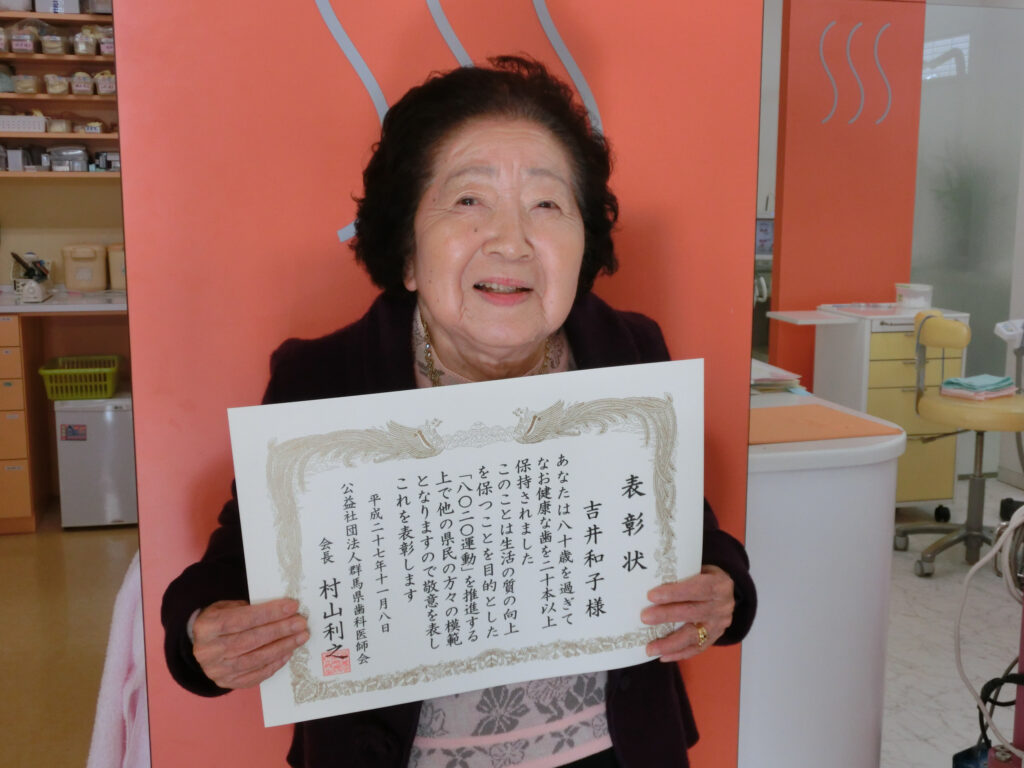 表彰状
吉井和子様
あなたは八十歳を過ぎて
なお健康な歯を二十本以上
保持されました
このことは生活の質の向上
を保つことを目的とした
「八〇二〇運動」を推進する
上で他の県民の方々の模範
となりますので敬意を表し
これを表彰します
平成二十七年十一月八日
公益社団法人群馬県歯科医師会
会長 村山利之